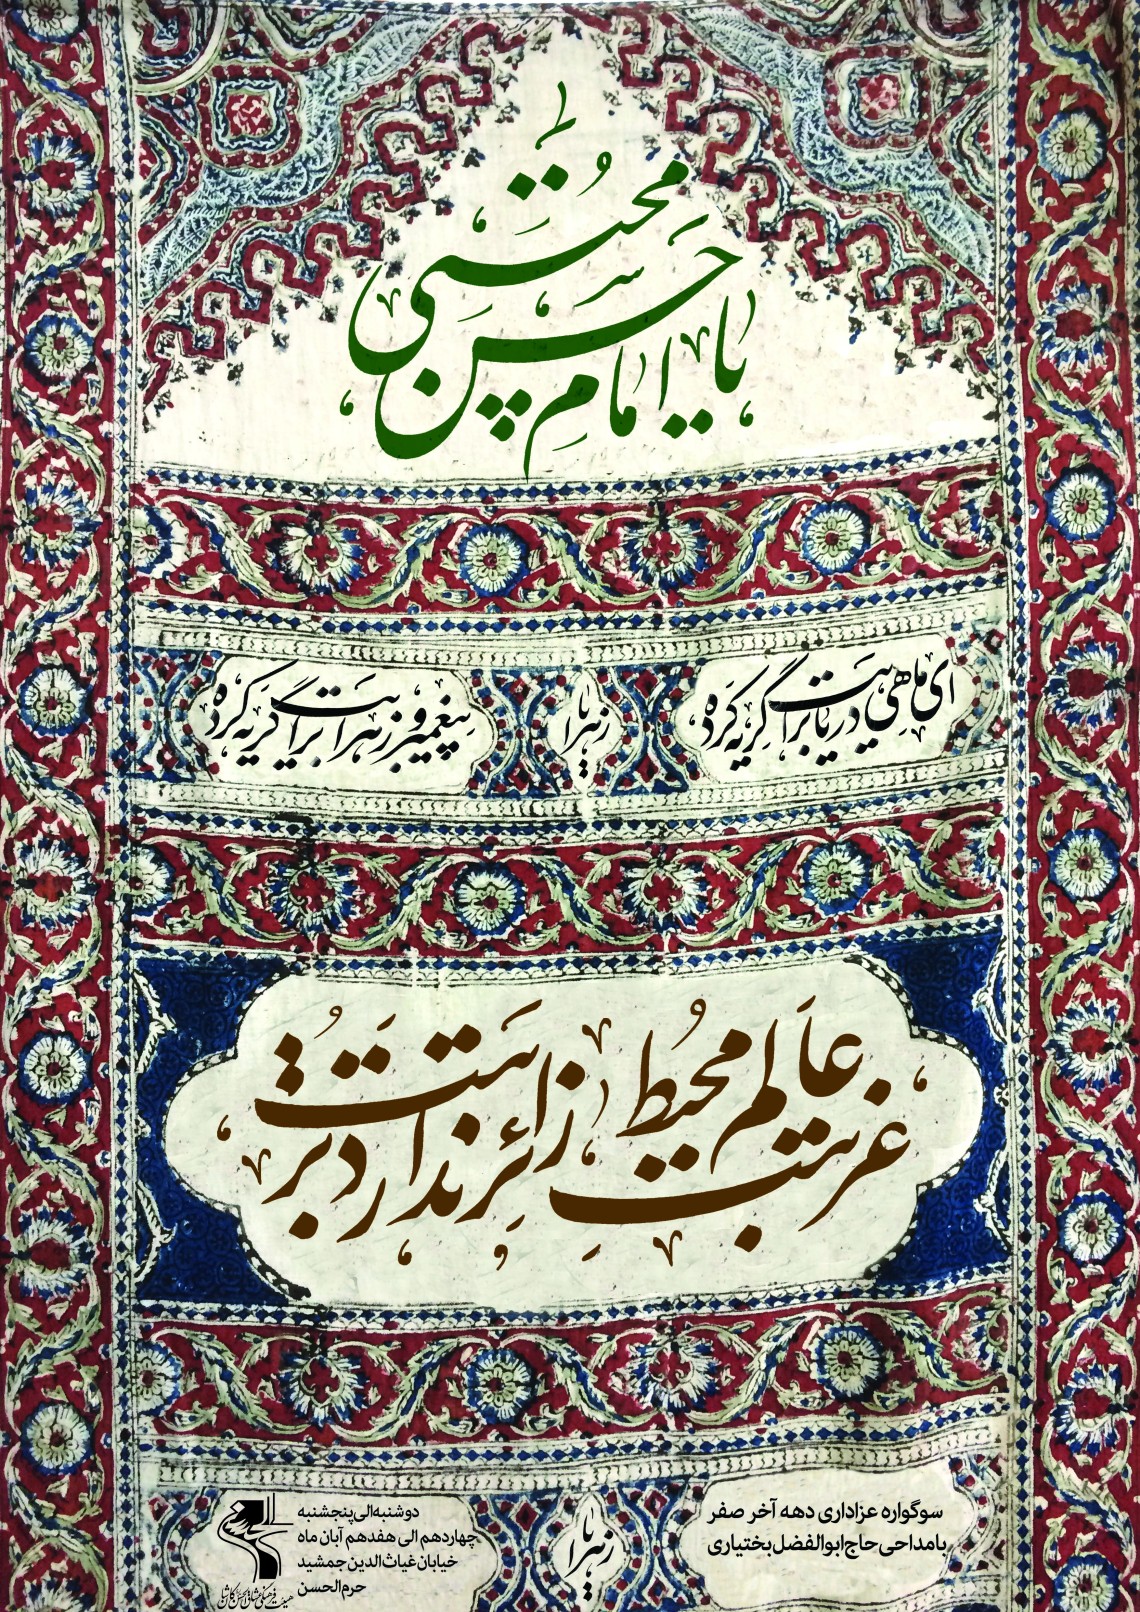 یا امام حسن مجتبی
ای ماهی دریا برایت گریه کرده
یا زهرا
پیغمبر و زهرا برایت گریه کرده
عالم محیط غربتت
زائر ندارد تربتت
سوگواره عزاداری دهه آخر صفر
بامداحی حاج ابوالفضل بختیاری
یا زهرا
دوشنبه الی پنجشنبه
چهاردهم الی هفدهم آبان ماه
خیابان غیاث الدین جمشید
حرم الحسن